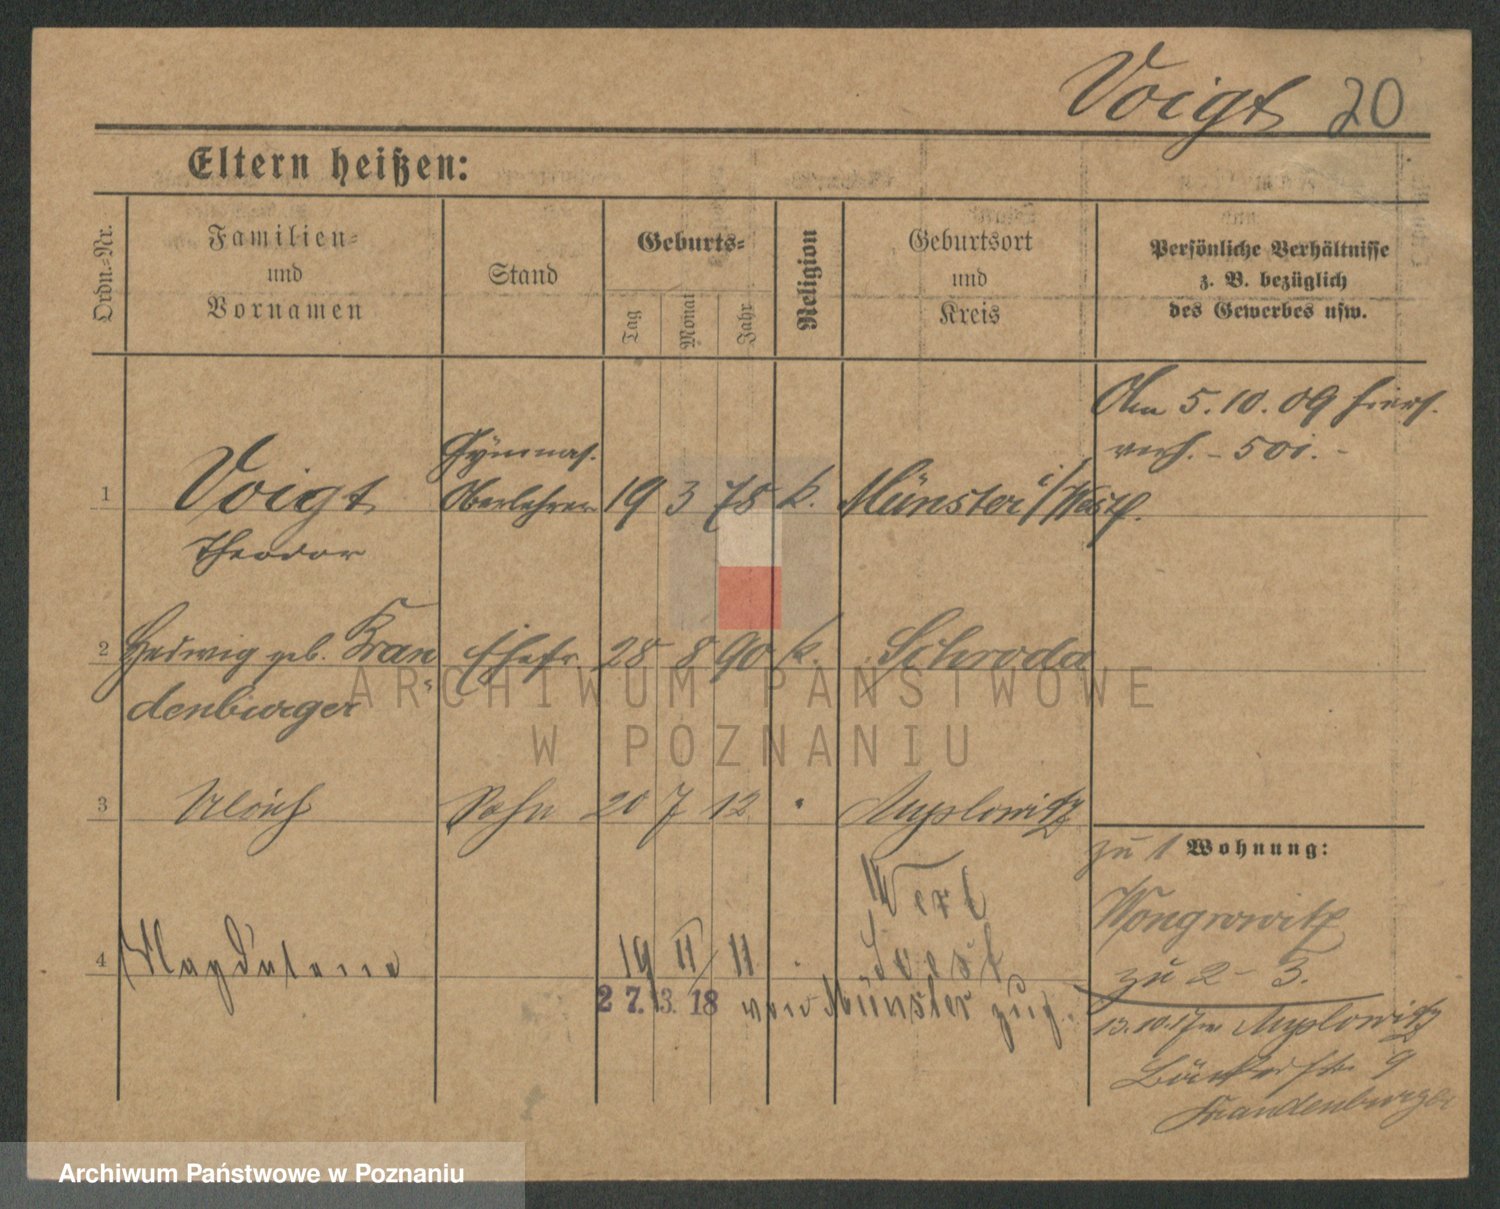 Voigt 20
Eltern heißen:
Ordn.=Nr.
Familien=
und
Vornamen
Stand
Geburts=
Tag
Monat
Jahr
Religion
Geburtsort
und
Kreis
Persönliche Verhältnisse
z. B. bezüglich
des Gewerbes usw.
Am 5.10.09 hiers.
verh. - 501. -
1 Voigt Gymnas. Oberlehrer 19 3 78 k. Münster i/Westf.
Theodor
2 Hedwig geb. Kran Ehefr. 28 8 90 k. Schroda
denburger
3 Ulrich Sohn 20 7 12 Myslowitz
zu 1 Wohnung:
Wongrowitz
zu 2 - 3.
13.10.17 Myslowitz
9
Krandenburger
Werl
4 Magdalena 19 II 11 Soest
27. 3. 18 von Münster zug.
ARCHIWUM PAŃSTWOWE
W POZNANIU
Archiwum Państwowe w Poznaniu